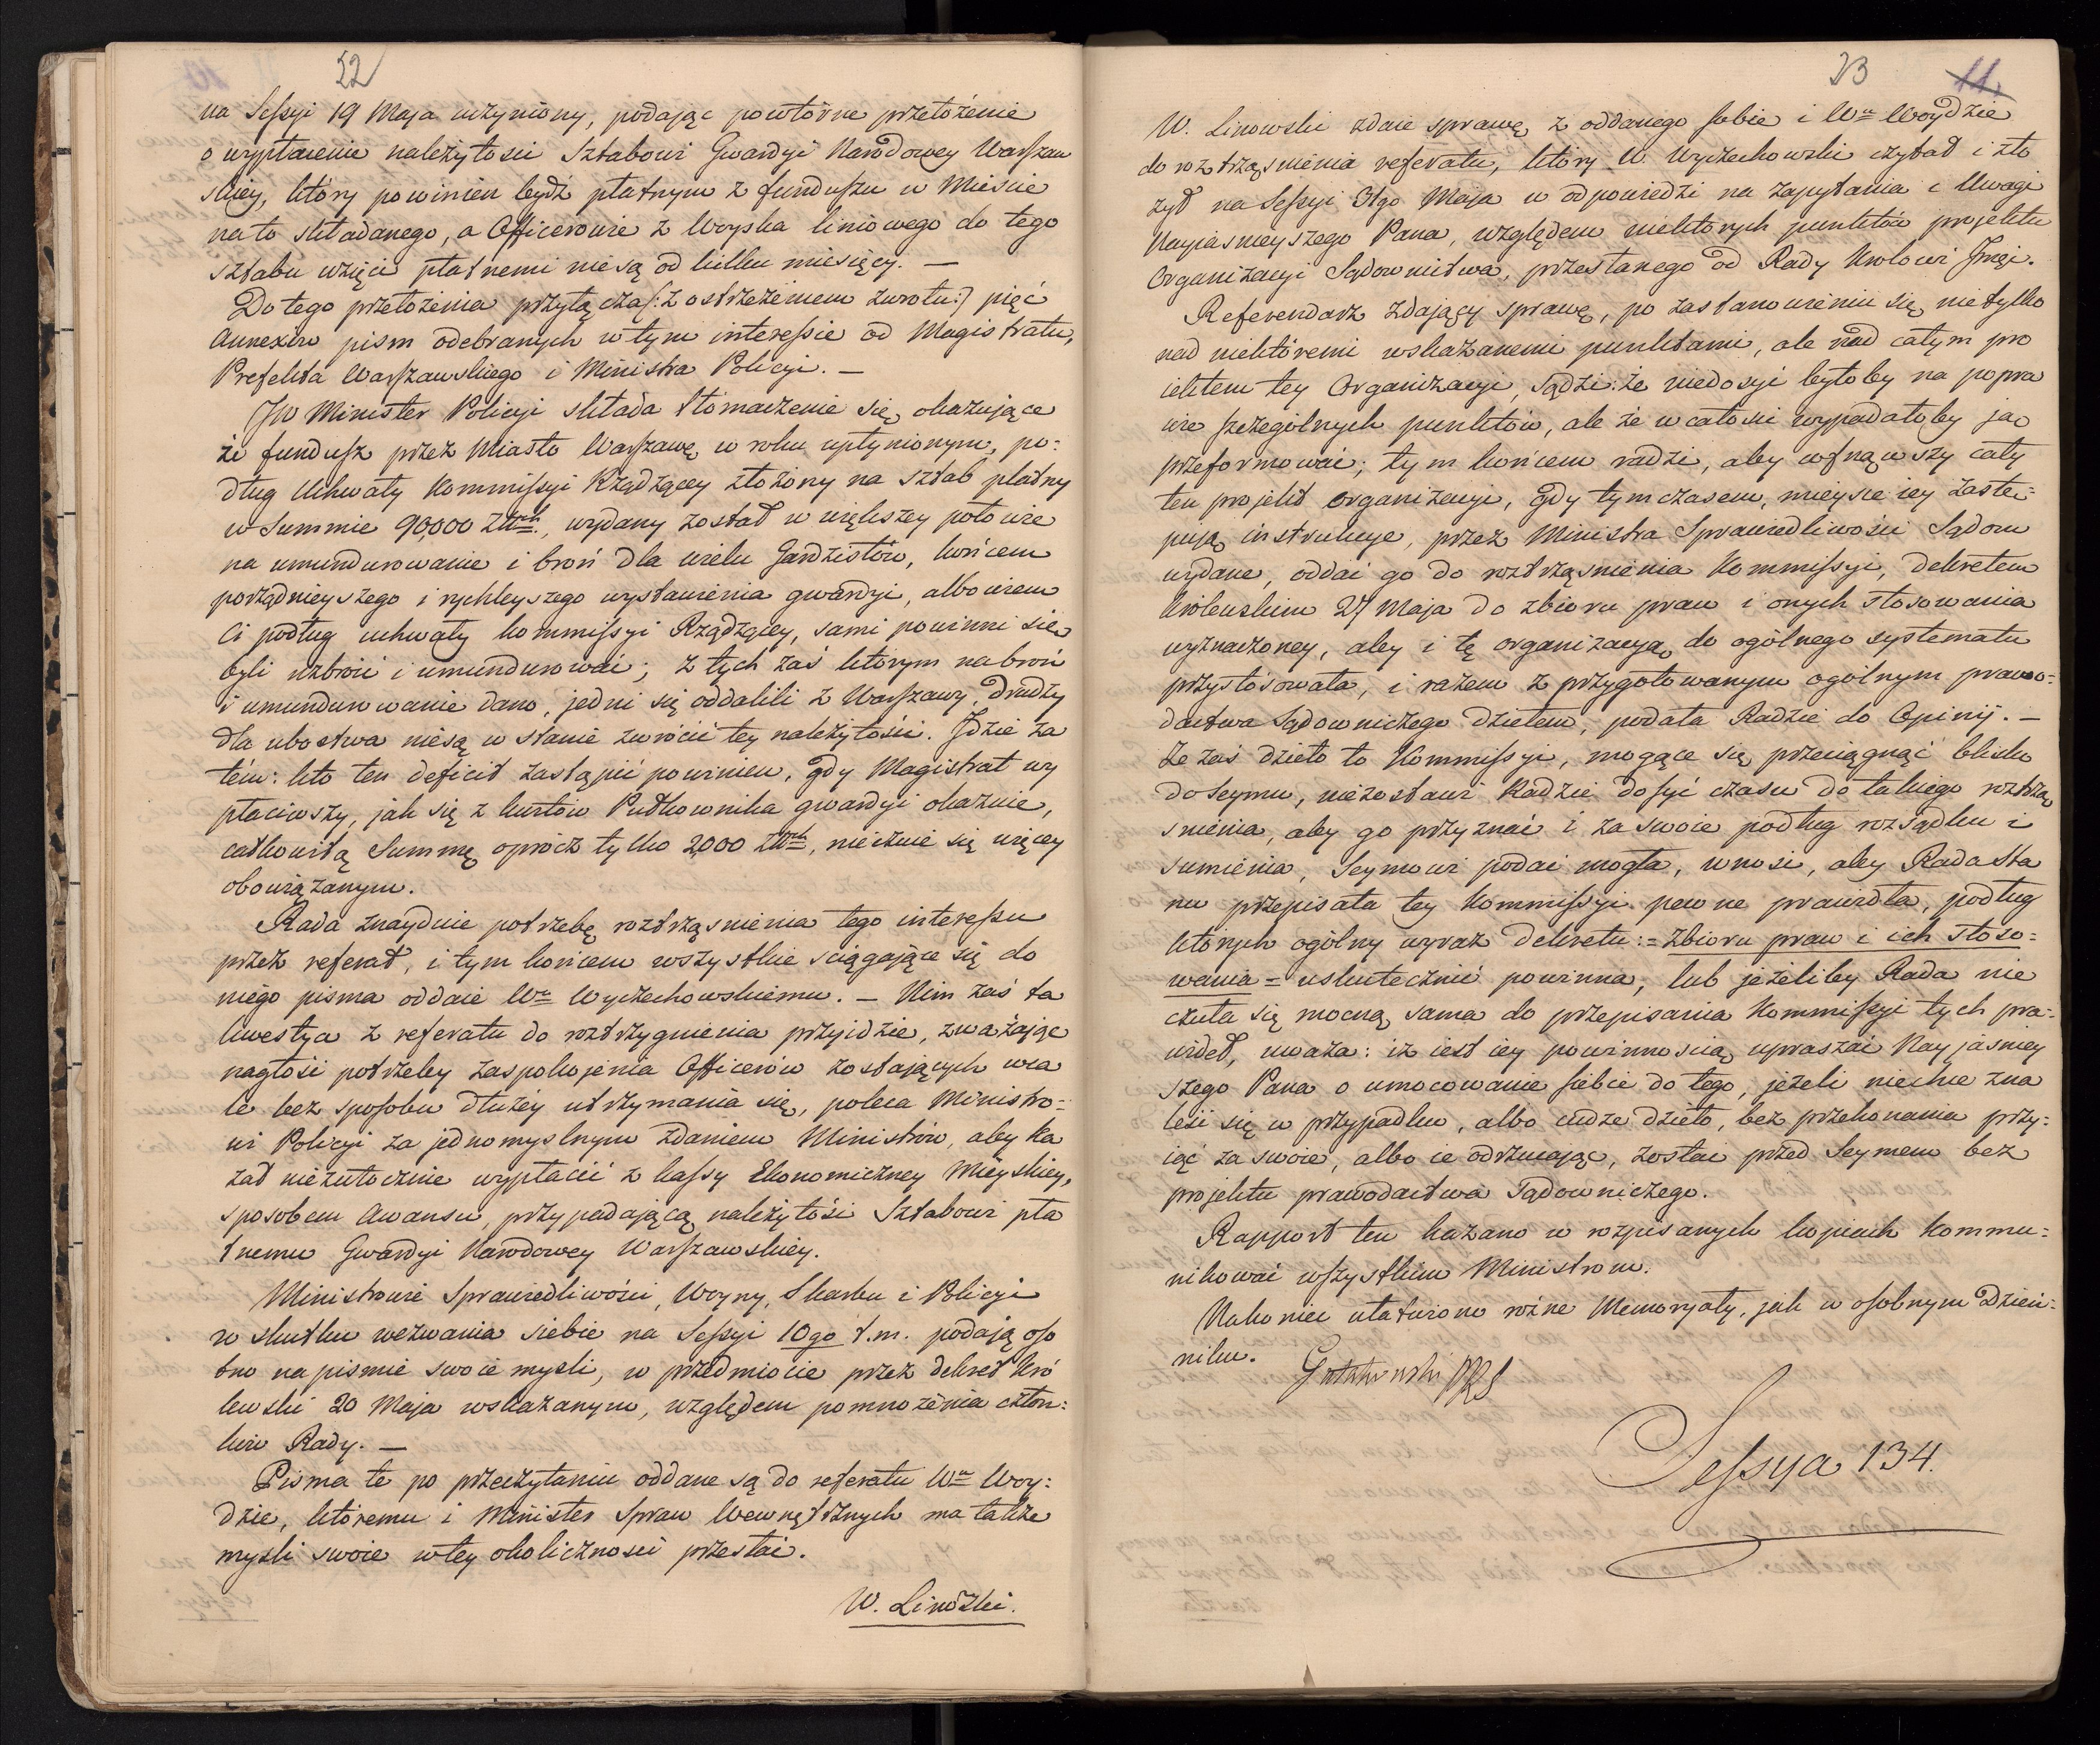 22
na Sessyi 19 Maja uczyniony, podając powtórne przełożenie
o wypłacenie należytości Sztabowi Gwardyi Narodowey Warszaw
skiey, który powinien bydź płatnym z funduszu w Mieście
na to składanego, a Officerowie z Woyska liniowego do tego
sztabu wzięci płatnemi nie są od kilku miesięcy. —
Do tego przełożenia przyłącza /:z ostrzeżeniem zwrotu:/ pięć
Annexów pism odebranych w tym interessie od Magistratu,
Prefekta Warszawskiego i Ministra Policyi. —
JW Minister Policyi składa tłomaczenie się, okazujące
że fundusz przez Miasto Warszawę w roku upłynionym, po=
dług Uchwały Kommissyi Rządzącey złożony na sztab płatny
w Summie 90,000 Złtch, wydany został w większey połowie
na umundurowanie i broń dla wielu Gardzistów, końcem
porządnieyszego i rychleyszego wystawienia gwardyi, albowiem
Ci podług uchwały Kommissyi Rządzącey, sami powinni się
byli uzbroić i umundurować; z tych zaś którym na broń
i umundurowanie dano, jedni się oddalili z Warszawy, drudzy
dla ubóstwa nie są w stanie zwrócić tey należytości. Idzie za
tém: kto ten deficit zastąpić powinien, gdy Magistrat wy
płaciwszy, jak się z kwitów Pułkownika gwardyi okazuie,
całkowitą Summę oprócz tylko 2,000 Złtch, nieczuie się więcey
obowiązanym.
Rada znayduie potrzebę roztrząśnienia tego interessu
przez referat, i tym końcem wszystkie sciągające się do
niego pisma oddaie Wu Wyczechowskiemu. — Nim zaś ta
kwestya z referatu do roztrzygnienia przyidzie, zważając
nagłość potrzeby zaspokojenia Officerów zostających wca
le bez sposobu dłużey utrzymania się, poleca Ministro=
wi Policyi za jednomyslnym zdaniem Ministrów, aby ka
zał niezwłocznie wypłacić z kassy Ekonomiczney Mieyskiey,
sposobem Awansu, przypadającą należytość Sztabowi pła
tnemu Gwardyi Narodowey Warszawskiey.
Ministrowie Sprawiedliwości, Woyny, Skarbu i Policyi
w skutku wezwania siebie na Sessyi 10go t.m. podają oso
bno na pismie swoie mysli, w przedmiocie przez dekret kró
lewski 20 Maja wskazanym, względem pomnożenia człon=
ków Rady. —
Pisma te po przeczytaniu oddane są do referatu Wu Woy=
dzie, któremu i Minister Spraw Wewnętrznych ma także
mysli swoie w tey okoliczności przesłać.
W. Linowski.
23 11.
W. Linowski zdaie sprawę z oddanego sobie i Wu Woydzie
do roztrząśnienia referatu, który W. Wyczechowski czytał i zło
żył na Sessyi 31go Maja w odpowiedzi na zapytania i Uwagi
Nayiasnieyszego Pana, względem niektórych punktów projektu
Organizacyi Sądownictwa, przesłanego od Rady Królowi Jmci.
Referendarz zdający sprawę, po zastanowieniu się nietylko
nad niektóremi wskazanemi punktami, ale nad całym pro
iektem tey Organizacyi, sądzi: że niedosyć byłoby na popra
wie szczególnych punktów, ale że w całości wypadałoby ją
przeformować; tym końcem radzi, aby cofnąwszy cały
ten projekt organizacyi, gdy tymczasem, mieysce iey zastę=
pują instrukcye, przez Ministra Sprawiedliwości Sądom
wydane, oddać go do roztrząśnienia Kommissyi, dekretem
Królewskim 27 Maja do zbioru praw i onych stosowania
wyznaczoney, aby i tę organizacyą do ogólnego systematu
przystosowała, i razem z przygotowanym ogólnym prawo=
dastwa Sądowniczego dziełem, podała Radzie do Opinij. —
Że zaś dzieło to Kommissyi, mogące się przeciągnąć blisko
do Seymu, niezostawi Radzie dosyć czasu do takiego roztrzą
snienia, aby go przyznać i za swoie podług rozsądku i
sumienia, Seymowi podać mogła, wnosi, aby Rada Sta
nu przepisała tey Kommissyi pewne prawidła, podług
których ogólny wyraz dekretu := zbioru praw i ich stoso=
wania = uskutecznić powinna, lub jeżeliby Rada nie
czuła się mocną sama do przepisania Kommissyi tych pra=
wideł, uważa: iż iest iey powinnością upraszać Nayjaśniey
szego Pana o umocowanie siebie do tego, jeżeli niechce zna
leść się w przypadku, albo cudze dzieło, bez przekonania przy=
iąć za swoie, albo ie odrzucając, zostać przed Seymem bez
projektu prawodastwa Sądowniczego.
Rapport ten kazano w rozpisanych kopiach kommu=
nikować wszystkim Ministrom.
Nakoniec ułatwiono różne Memoryały, jak w osobnym Dzien=
niku.
Gutakowski PRS
Sessya 134.